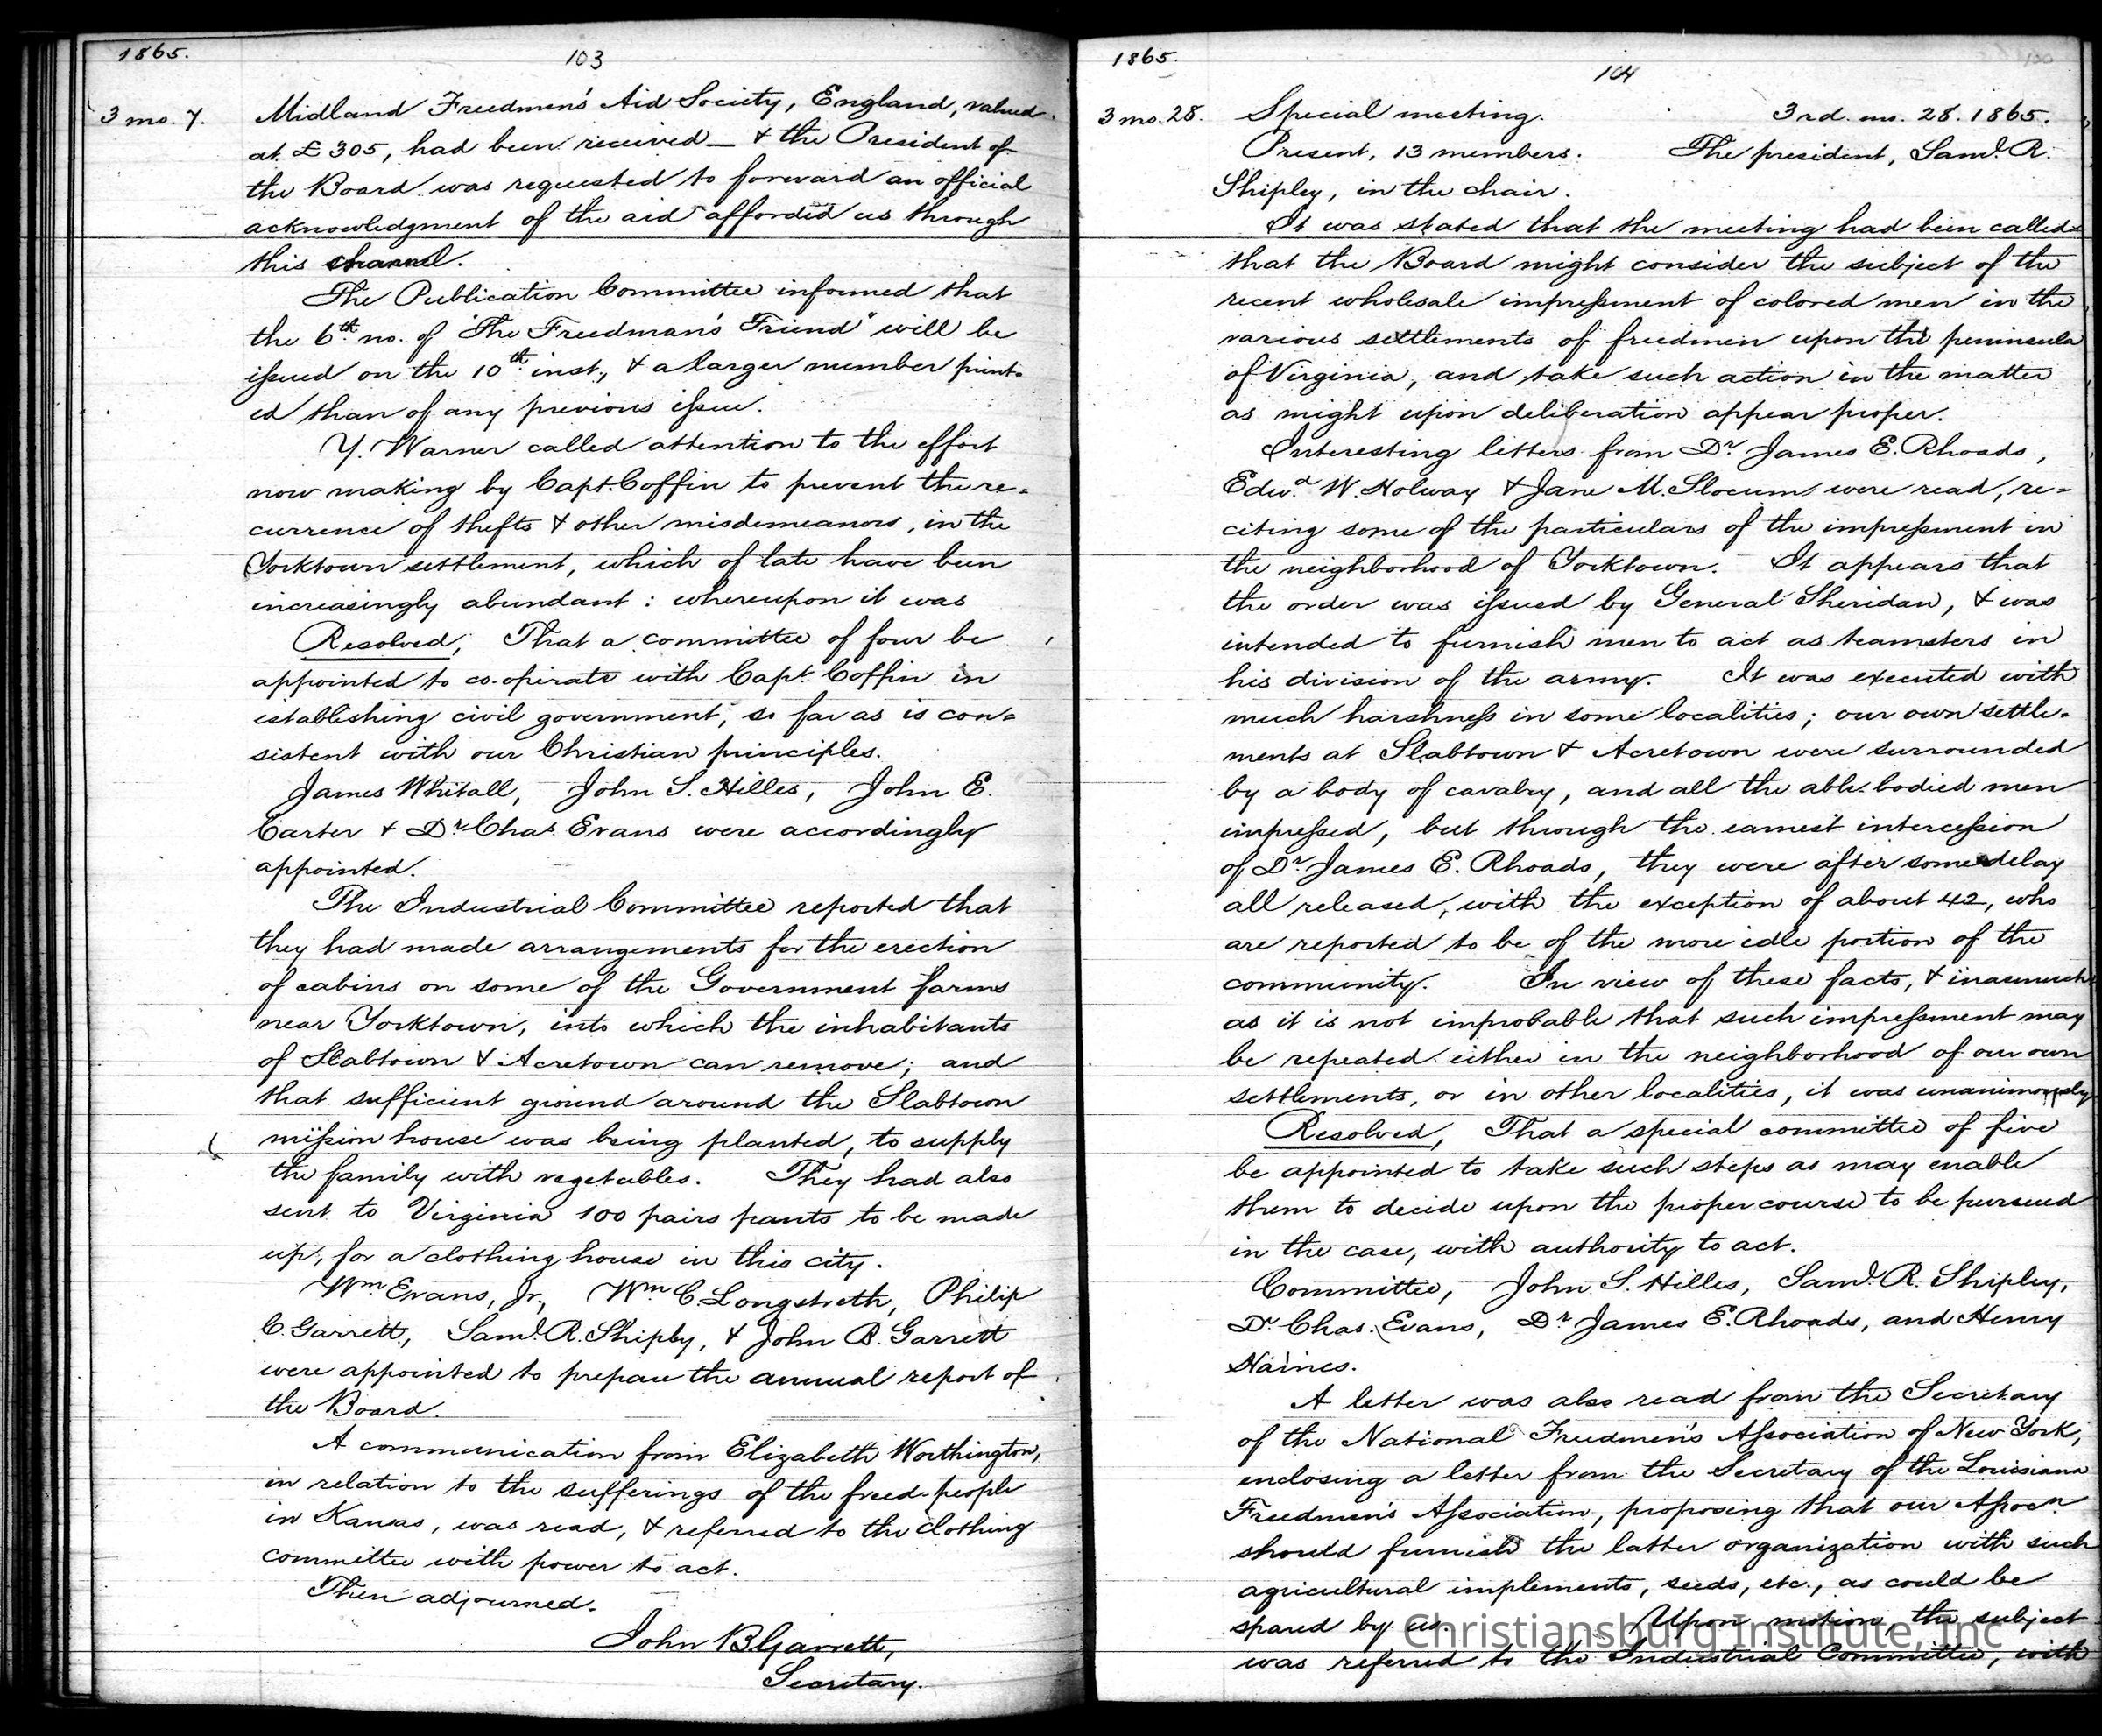 1865.
103
3 mo. 7.
Midland Freedmen's Aid Society, England, valued
at £305, had been received — & the President of
the Board was requested to forward an official
acknowledgment of the aid afforded us through
this channel.
The Publication Committee informed that
the 6th no. of "The Freedman's Friend" will be
issued on the 10th inst., & a larger number print-
ed than of any previous issue.
Y. Warner called attention to the effort
now making by Capt. Coffin to prevent the re-
currence of thefts & other misdemeanors, in the
Yorktown settlement, which of late have been
increasingly abundant: whereupon it was
Resolved, That a committee of four be
appointed to co-operate with Capt. Coffin in
establishing civil government, so far as is con-
sistent with our Christian principles.
James Whitall, John S. Hilles, John E.
Carter & Dr Chas. Evans were accordingly
appointed.
The Industrial Committee reported that
they had made arrangements for the erection
of cabins on some of the Government farms
near Yorktown, into which the inhabitants
of Slabtown & Acretown can remove; and
that sufficient ground around the Slabtown
mission house was being planted, to supply
the family with vegetables. They had also
sent to Virginia 100 pairs pants to be made
up, for a clothing house in this city.
Wm Evans, Jr., Wm C. Longstreth, Philip
C. Garrett, Saml. R. Shipley, & John B. Garrett
were appointed to prepare the annual report of
the Board.
A communication from Elizabeth Worthington,
in relation to the sufferings of the freed-people
in Kansas, was read, & referred to the clothing
committee with power to act.
Then adjourned.
John B Garrett,
Secretary.
1865.
104
3 mo. 28.
Special meeting. 3rd. mo. 28. 1865.
Present, 13 members. The president, Saml. R.
Shipley, in the chair.
It was stated that the meeting had been called
that the Board might consider the subject of the
recent wholesale impressment of colored men in the
various settlements of freedmen upon the peninsula
of Virginia, and take such action in the matter
as might upon deliberation appear proper.
Interesting letters from Dr. James E. Rhoads,
Edwd. W. Holway & Jane M. Slocum were read, re-
citing some of the particulars of the impressment in
the neighborhood of Yorktown. It appears that
the order was issued by General Sheridan, & was
intended to furnish men to act as teamsters in
his division of the army. It was executed with
much harshness in some localities; our own settle-
ments at Slabtown & Acretown were surrounded
by a body of cavalry, and all the able-bodied men
impressed, but through the earnest intercession
of Dr. James E. Rhoads, they were after some delay
all released, with the exception of about 42, who
are reported to be of the more idle portion of the
community. In view of these facts, & inasmuch
as it is not improbable that such impressment may
be repeated either in the neighborhood of our own
settlements, or in other localities, it was unanimously
Resolved, That a special committee of five
be appointed to take such steps as may enable
them to decide upon the proper course to be pursued
in the case, with authority to act.
Committee, John S. Hilles, Saml. R. Shipley,
Dr. Chas. Evans, Dr James E. Rhoads, and Henry
Haines.
A letter was also read from the Secretary
of the National Freedmen's Association of New York,
enclosing a letter from the Secretary of the Louisiana
Freedmen's Association, proposing that our Assocn.
should furnish the latter organization with such
agricultural implements, seeds, etc., as could be
spared by us. Upon motion, the subject
was referred to the Industrial Committee, with
Christiansburg Institute, Inc